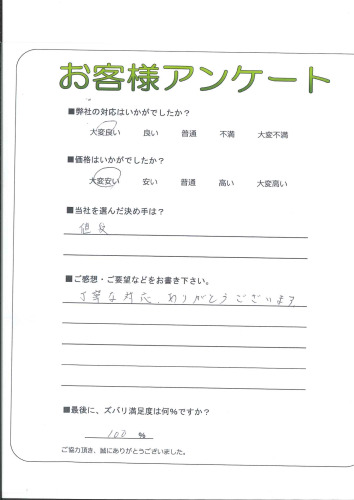 お客様アンケート
■弊社の対応はいかがでしたか？
大変良い 良い 普通 不満 大変不満
■価格はいかがでしたか？
大変安い 安い 普通 高い 大変高い
■当社を選んだ決め手は？
値段
■ご感想・ご要望などをお書き下さい。
丁寧な対応、ありがとうございます
■最後に、ズバリ満足度は何％ですか？
100 ％
ご協力頂き、誠にありがとうございました。